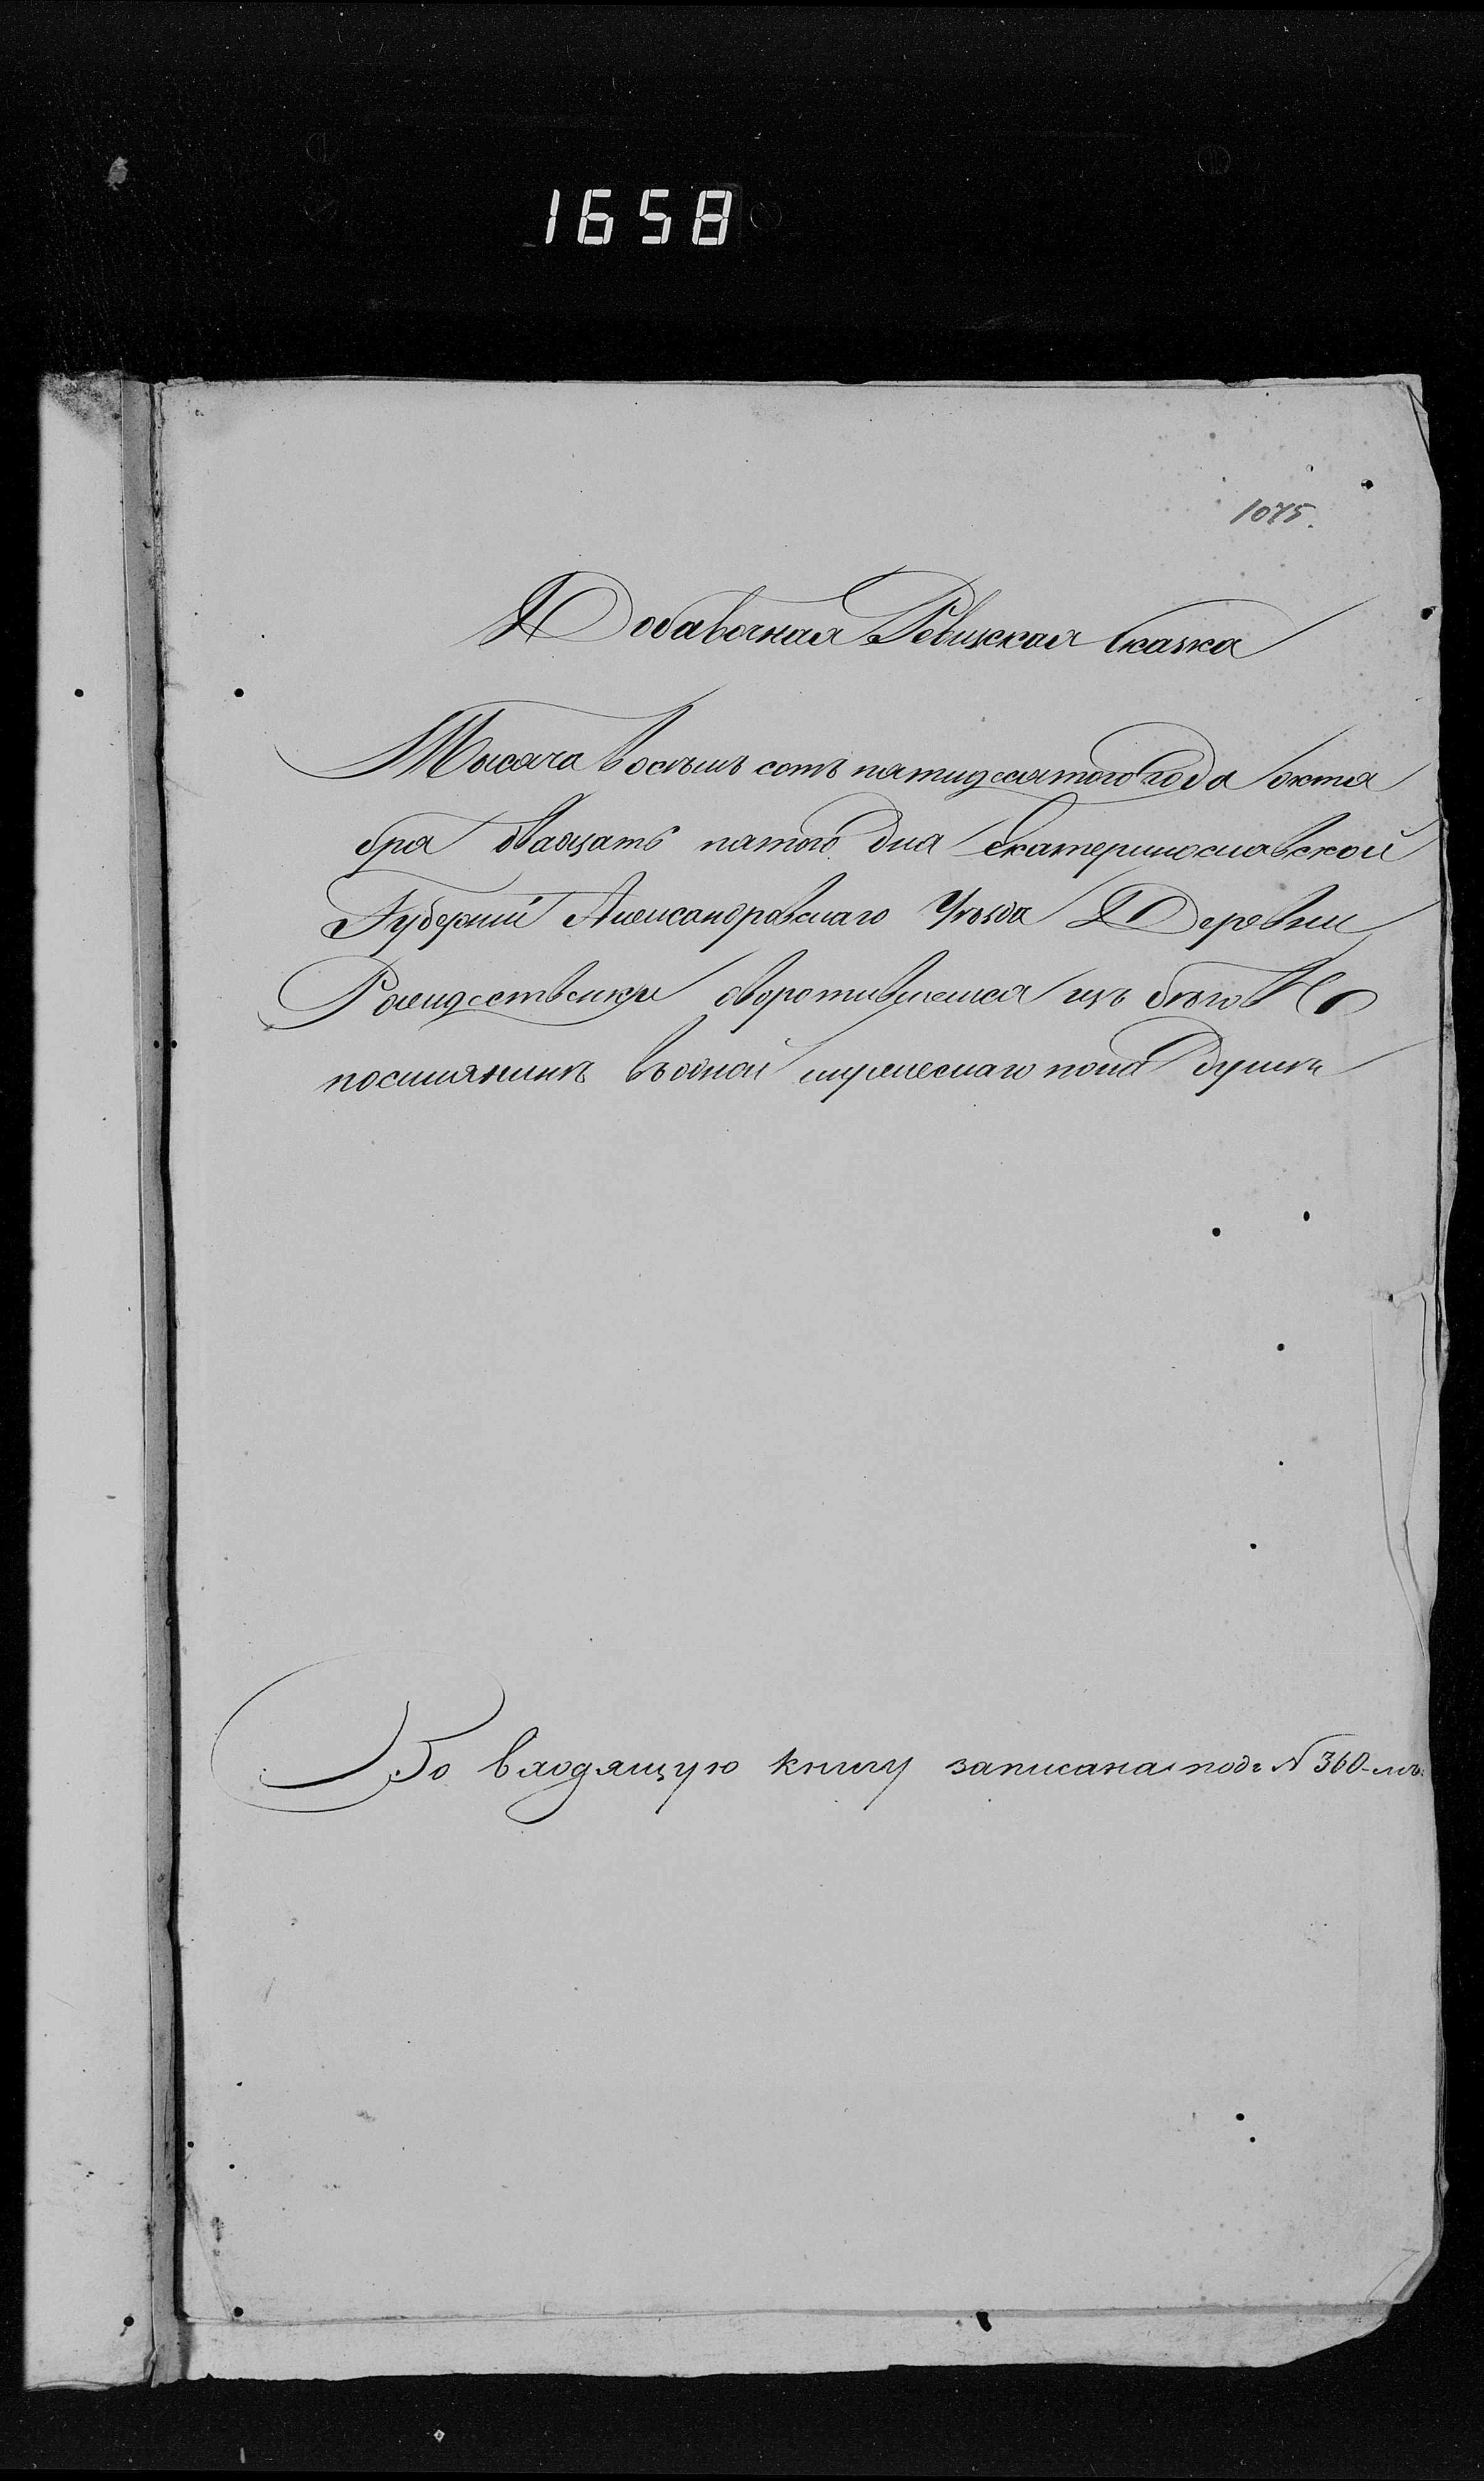 1658
1075.
Добавочная Ревизская Сказка
Тысяча восемь сотъ пятидесятого года октя
бря двадцать пятого дня Екатеринославской
Губерніи Александровскаго Уѣзда Деревни
Рождественки оворотившемся изъ бѣговъ
поселянинѣ въ одной мужескаго пола душѣ
Во входящую книгу записана подъ № 360-мъ.